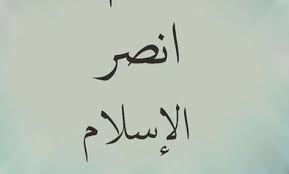 انصر
الإسلام